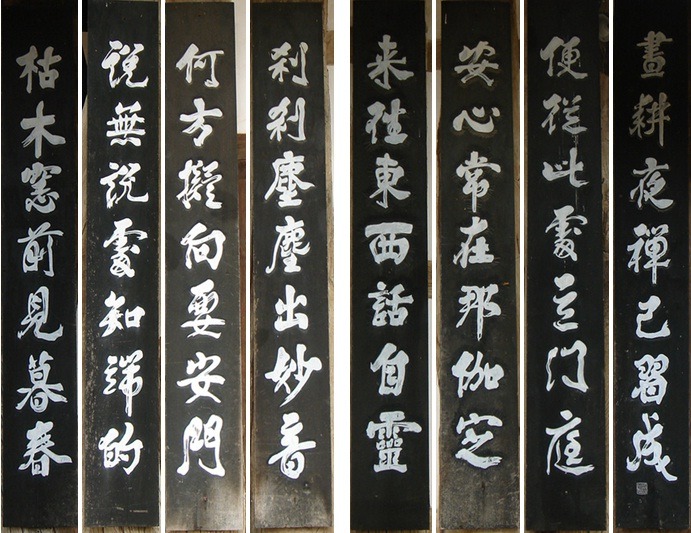 晝耕夜禪已習成
便從此處立门庭
安心常在那伽定
来往東西話自靈
刹刹塵塵出妙音
何方擬向要安門
說無說處知端的
枯木窓前見暮春